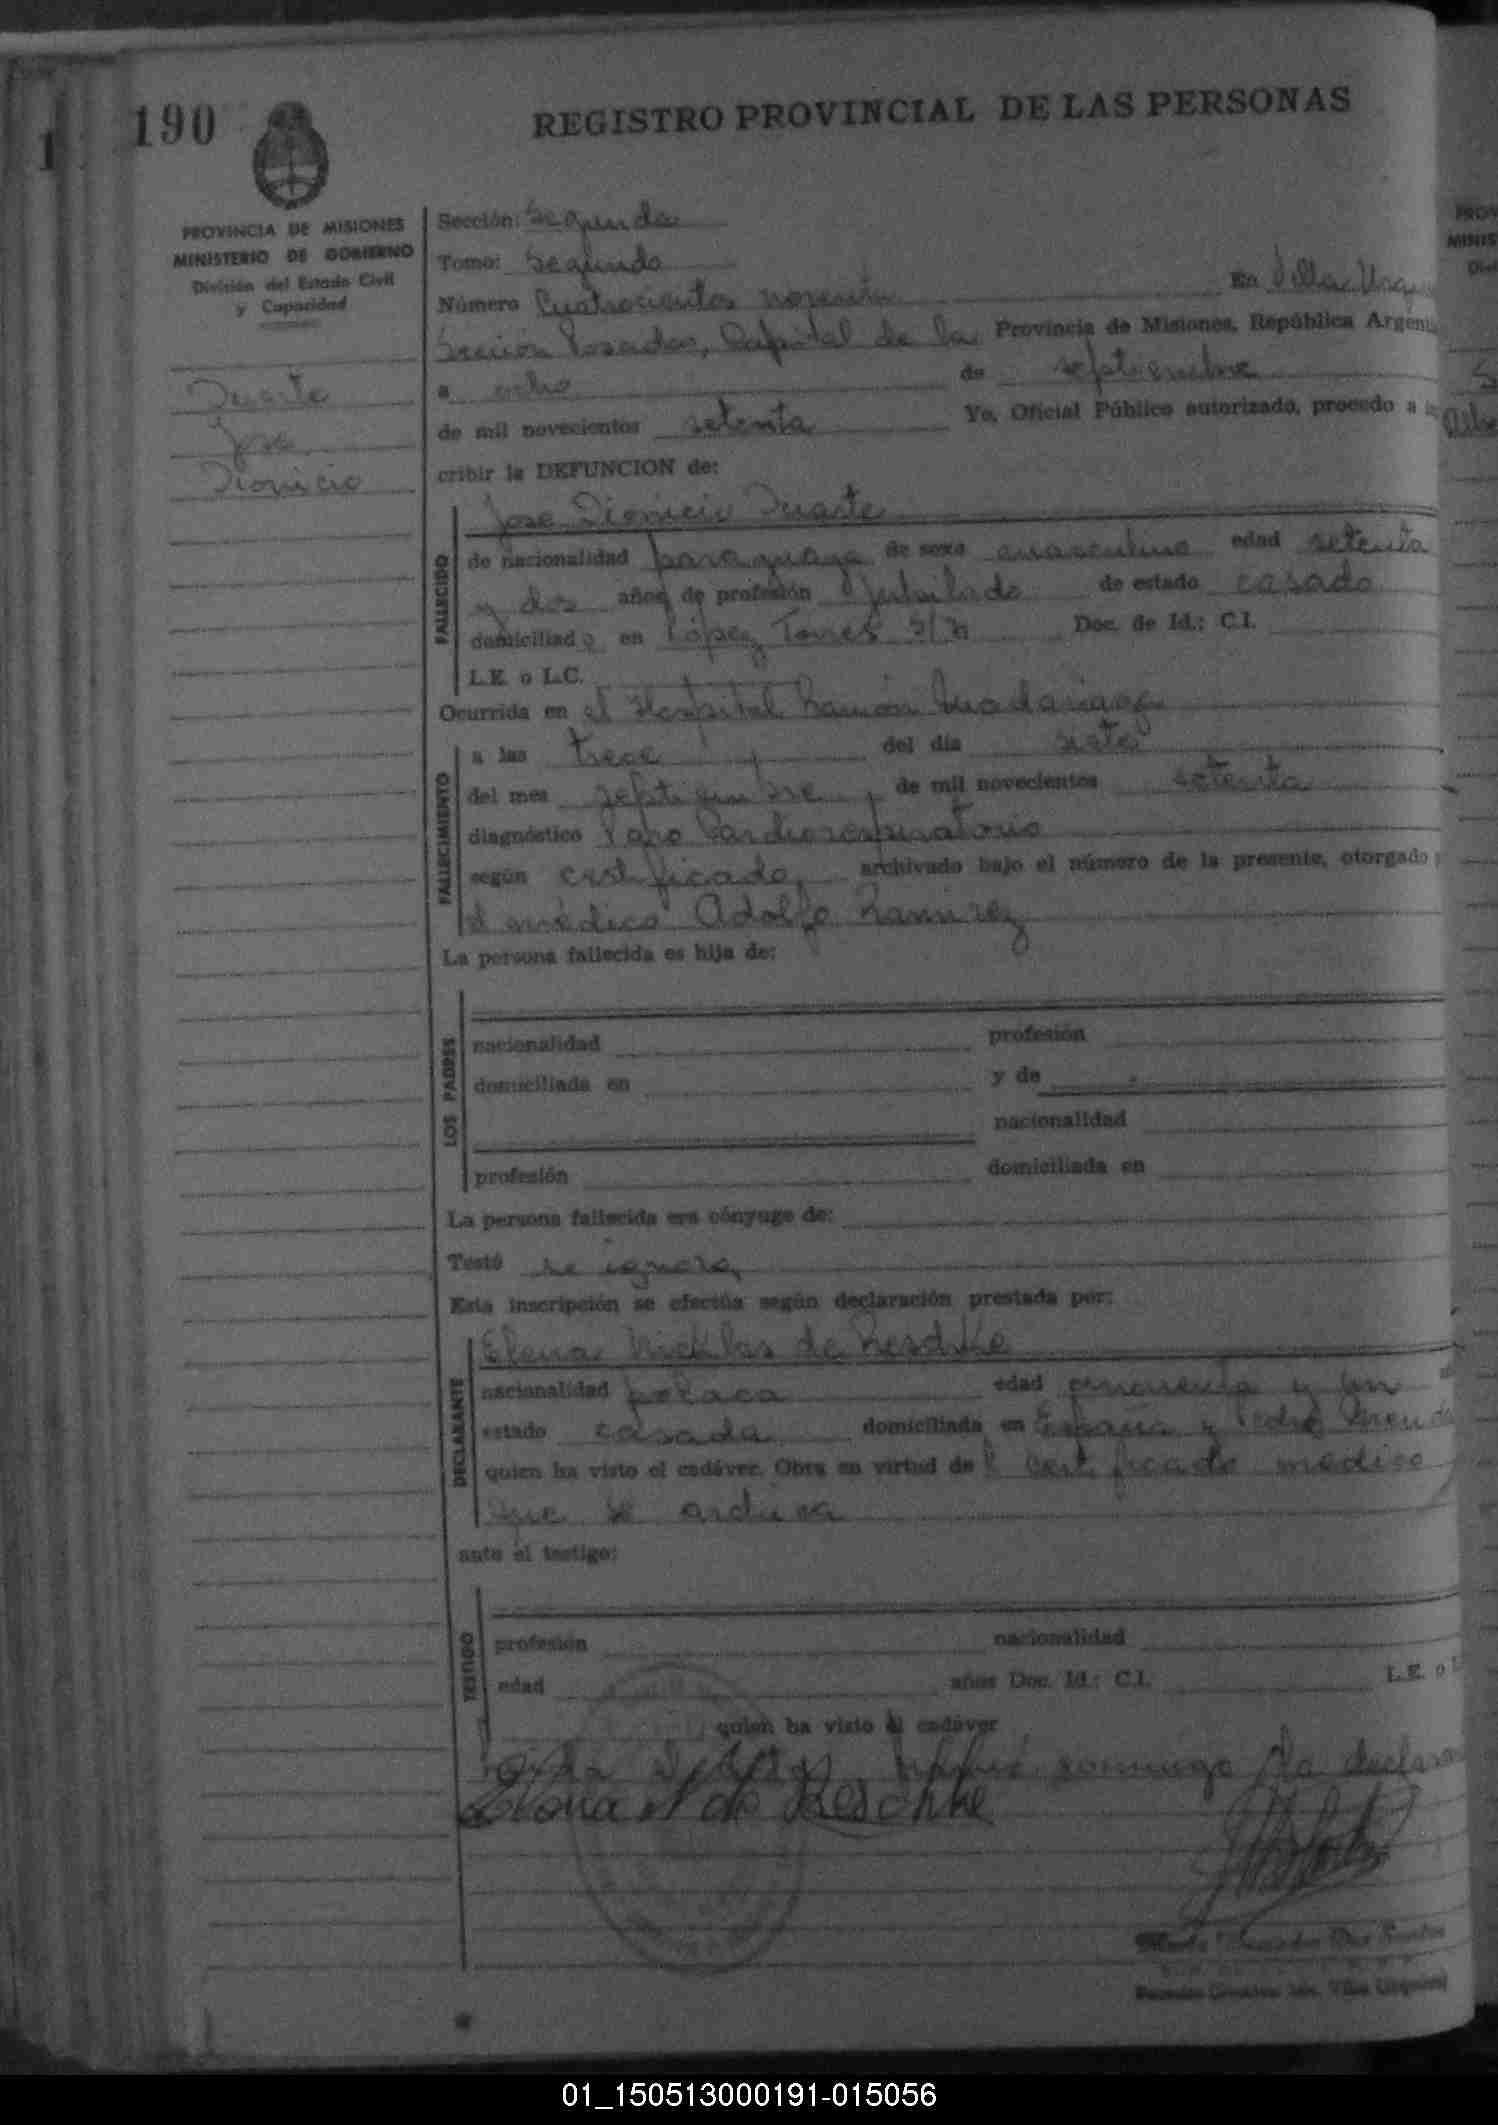 190
1
REGISTRO PROVINCIAL DE LAS PERSONAS
PROVINCIA DE MISIONES
MINISTERIO DE GOBIERNO
División del Estado Civil
y Capacidad
Duarte
Jose
Dionicio
Sección: Segunda
Tomo: Segundo
Número Cuatrocientos noventa En Villa Urqu
Sección Posadas, Capital de la Provincia de Misiones, República Argent
a ocho de septiembre
de mil novecientos setenta Yo, Oficial Público autorizado, procedo a
cribir la DEFUNCION de:
FALLECIDO
Jose Dionicio Duarte
de nacionalidad paraguaya de sexo masculino edad setenta
y dos años de profesión Jubilado de estado casado
domiciliado en López Torres S/n Doc. de Id.: C.I.
L.E. o L.C.
Ocurrida en el Hospital Ramón Madariaga
FALLECIMIENTO
a las trece del día siete
del mes septiembre, de mil novecientos setenta
diagnóstico Paro Cardiorespiratorio
según certificado, archivado bajo el número de la presente, otorgado
el médico Adolfo Ramirez
La persona fallecida es hija de:
LOS PADRES
nacionalidad profesión
domiciliada en y de
nacionalidad
profesión domiciliada en
La persona fallecida era cónyuge de:
Testó se ignora
Esta inscripción se efectúa según declaración prestada por:
DECLARANTE
Elena Nicklas de Reschke
nacionalidad polaca edad cincuenta y un
estado casada domiciliada en España y Pedro Mendez
quien ha visto el cadáver. Obra en virtud del certificado medico
que se archiva
ante el testigo:
TESTIGO
profesión nacionalidad
edad años Doc. Id.: C.I. L.E. o L
quien ha visto el cadáver
conmigo la declara
Elena N de Reschke
Dos Santos
01_150513000191-015056